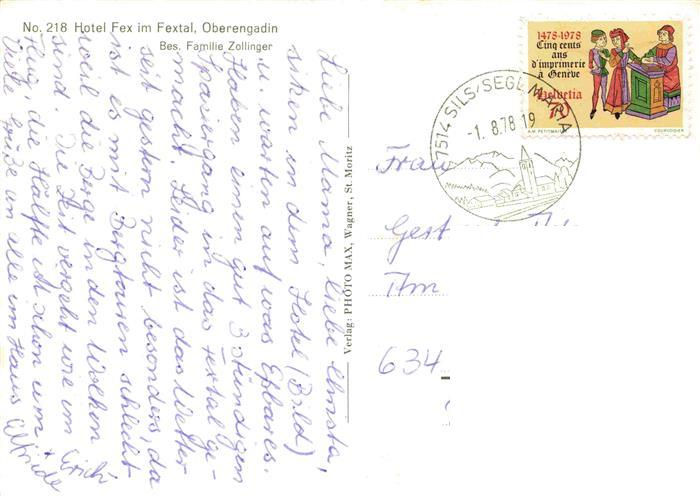 No. 218 Hotel Fex im Fextal, Oberengadin
Bes. Familie Zollinger
Liebe Mama, liebe
sitzen in dem Hotel (Bild)
u. warten auf was Eßbares.
Haben einen gut 3 stündigen
Spaziergang in das Fextal ge-
macht. Leider ist das Wetter
seit gestern nicht besonders, da
ist es mit Bergtouren schlecht
weil die Berge in den Wolken
sind. Die Zeit vergeht wie im
Flug, die Hälfte ist schon um
Viele Grüße an alle im Haus
Verlag: PHOTO MAX, Wagner, St. Moritz
1478-1978
Cinq cents
ans
d'imprimerie
à Genève
Helvetia
70
COURVOISIER
7514 SILS/SEGL MARIA
-1. 8.78 19
Frau
Gest
Am
634